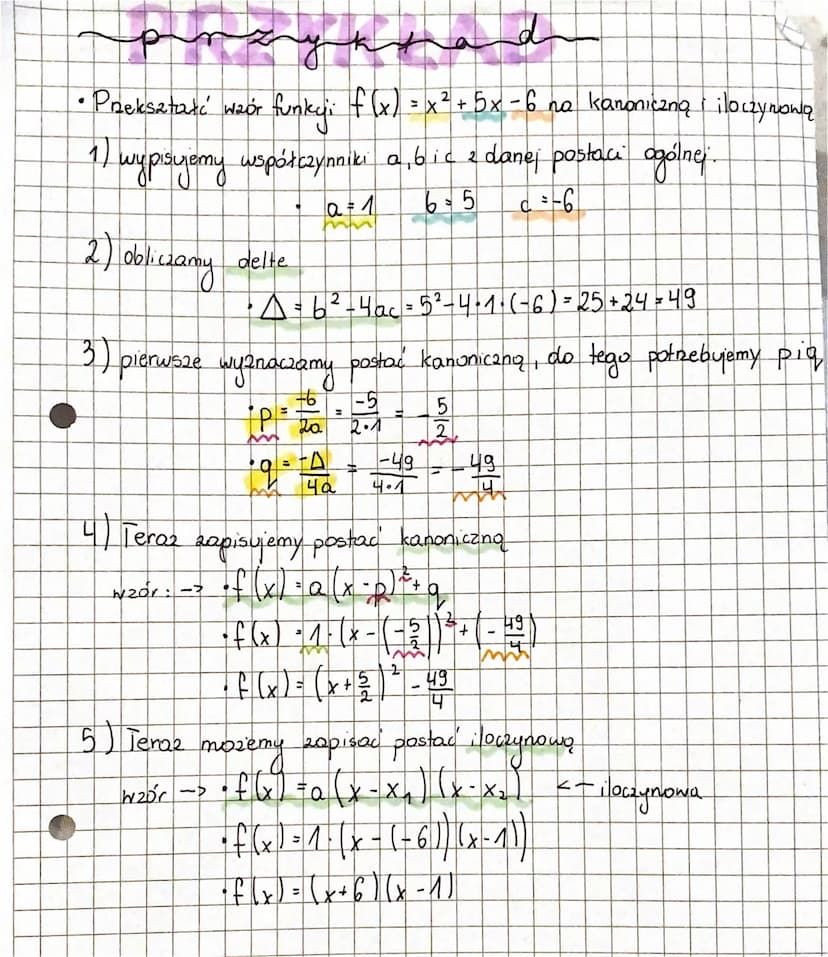 PRZYKŁAD
przykład
• Przekształć wzór funkcji f(x) = x² + 5x - 6 na kanoniczną i iloczynową
1) wypisujemy współczynniki a, b i c z danej postaci ogólnej.
• a = 1 b = 5 c = -6
2) obliczamy delte
• Δ = b² - 4ac = 5² - 4·1·(-6) = 25 + 24 = 49
3) pierwsze wyznaczamy postać kanoniczną, do tego potrzebujemy p i q
• p = -b/2a = -5/2·1 = -5/2
• q = -Δ/4a = -49/4·1 = -49/4
4) Teraz zapisujemy postać kanoniczną
wzór: -> • f(x) = a(x - p)² + q
• f(x) = 1·(x - (-5/2))² + (-49/4)
• f(x) = (x + 5/2)² - 49/4
5) Teraz możemy zapisać postać iloczynową
wzór -> • f(x) = a(x - x₁)(x - x₂) <- iloczynowa
• f(x) = 1·(x - (-6))(x - 1))
• f(x) = (x + 6)(x - 1)